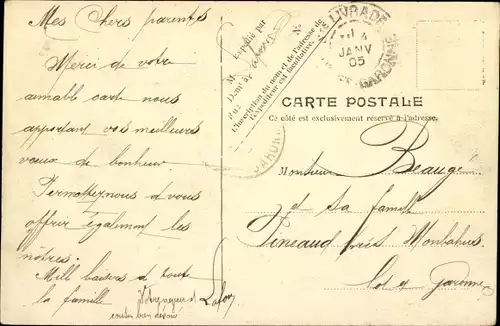 Mes Chers parents
Merci de votre
aimable carte nous
apportant vos meilleurs
vœux de bonheur.
Permettez nous d vous
offrir également les
nôtres.
Mill baisers d tout
la famille
bien
Expédié par
M
Demt à
Rue
N°
L'inscription du nom et de l'adresse de
l'expéditeur est facultative.
LIVRADE
JANV
05
GARONNE
CARTE POSTALE
Ce côté est exclusivement réservé à l'adresse.
Monsieur Beaugé
et sa famille
Tineaud près Monbahus
Lot et Garonne